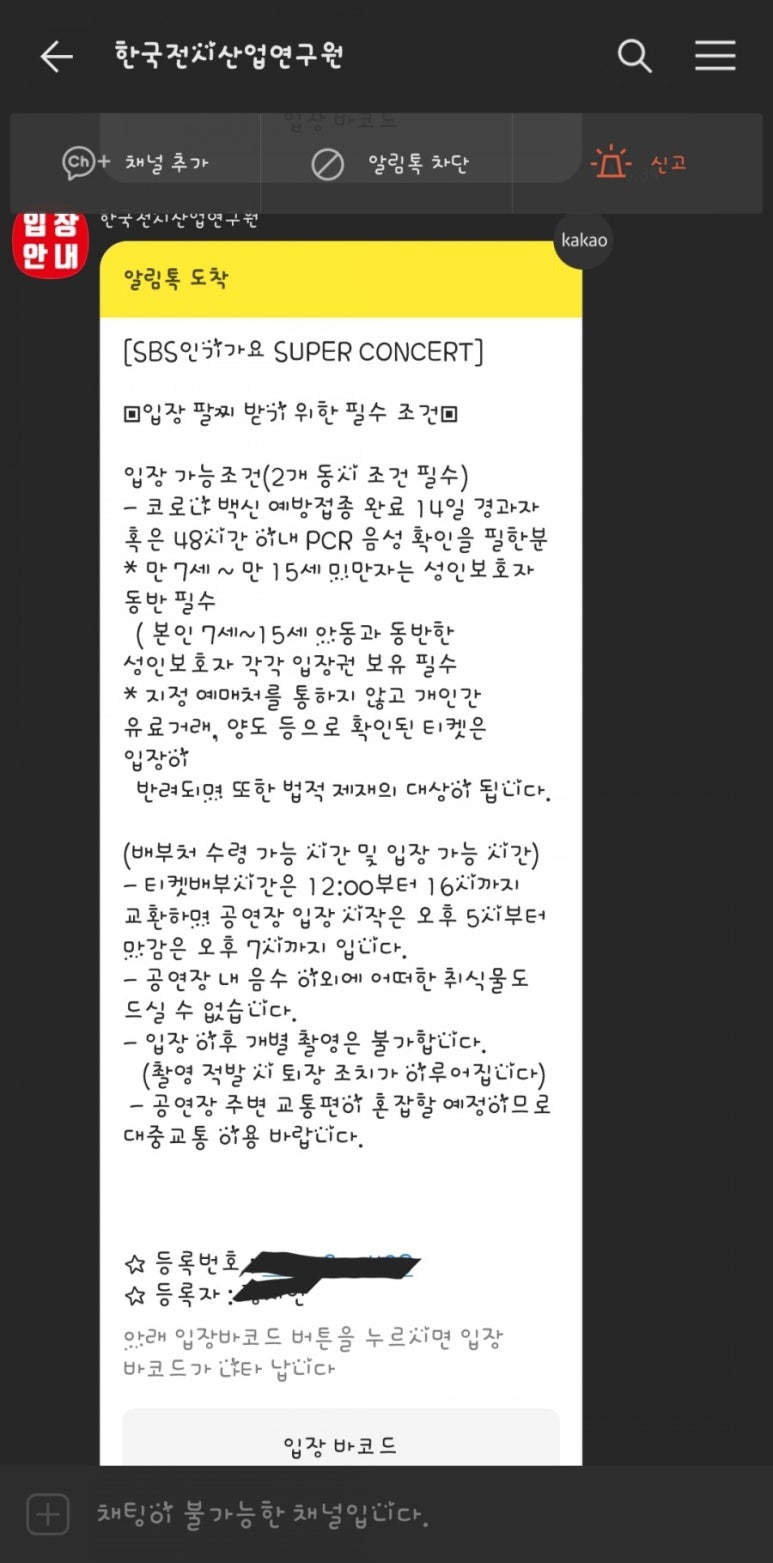 한국전시산업연구원
입장 바코드
채널 추가
알림톡 차단
신고
입장
안내
한국전시산업연구원
kakao
알림톡 도착
[SBS인기가요 SUPER CONCERT]
▣입장 팔찌 받기 위한 필수 조건▣
입장 가능조건(2개 동시 조건 필수)
- 코로나 백신 예방접종 완료 14일 경과자
혹은 48시간 이내 PCR 음성 확인을 필한분
* 만 7세 ~ 만 15세 미만자는 성인보호자
동반 필수
( 본인 7세~15세 아동과 동반한
성인보호자 각각 입장권 보유 필수
* 지정 예매처를 통하지 않고 개인간
유료거래, 양도 등으로 확인된 티켓은
입장이
반려되며 또한 법적 제재의 대상이 됩니다.
(배부처 수령 가능 시간 및 입장 가능 시간)
- 티켓배부시간은 12:00부터 16시까지
교환하며 공연장 입장 시작은 오후 5시부터
마감은 오후 7시까지 입니다.
- 공연장 내 음수 이외에 어떠한 취식물도
드실 수 없습니다.
- 입장 이후 개별 촬영은 불가합니다.
(촬영 적발 시 퇴장 조치가 이루어집니다)
- 공연장 주변 교통편이 혼잡할 예정이므로
대중교통 이용 바랍니다.
☆ 등록번호 :
☆ 등록자 :
아래 입장바코드 버튼을 누르시면 입장
바코드가 나타 납니다
입장 바코드
채팅이 불가능한 채널입니다.